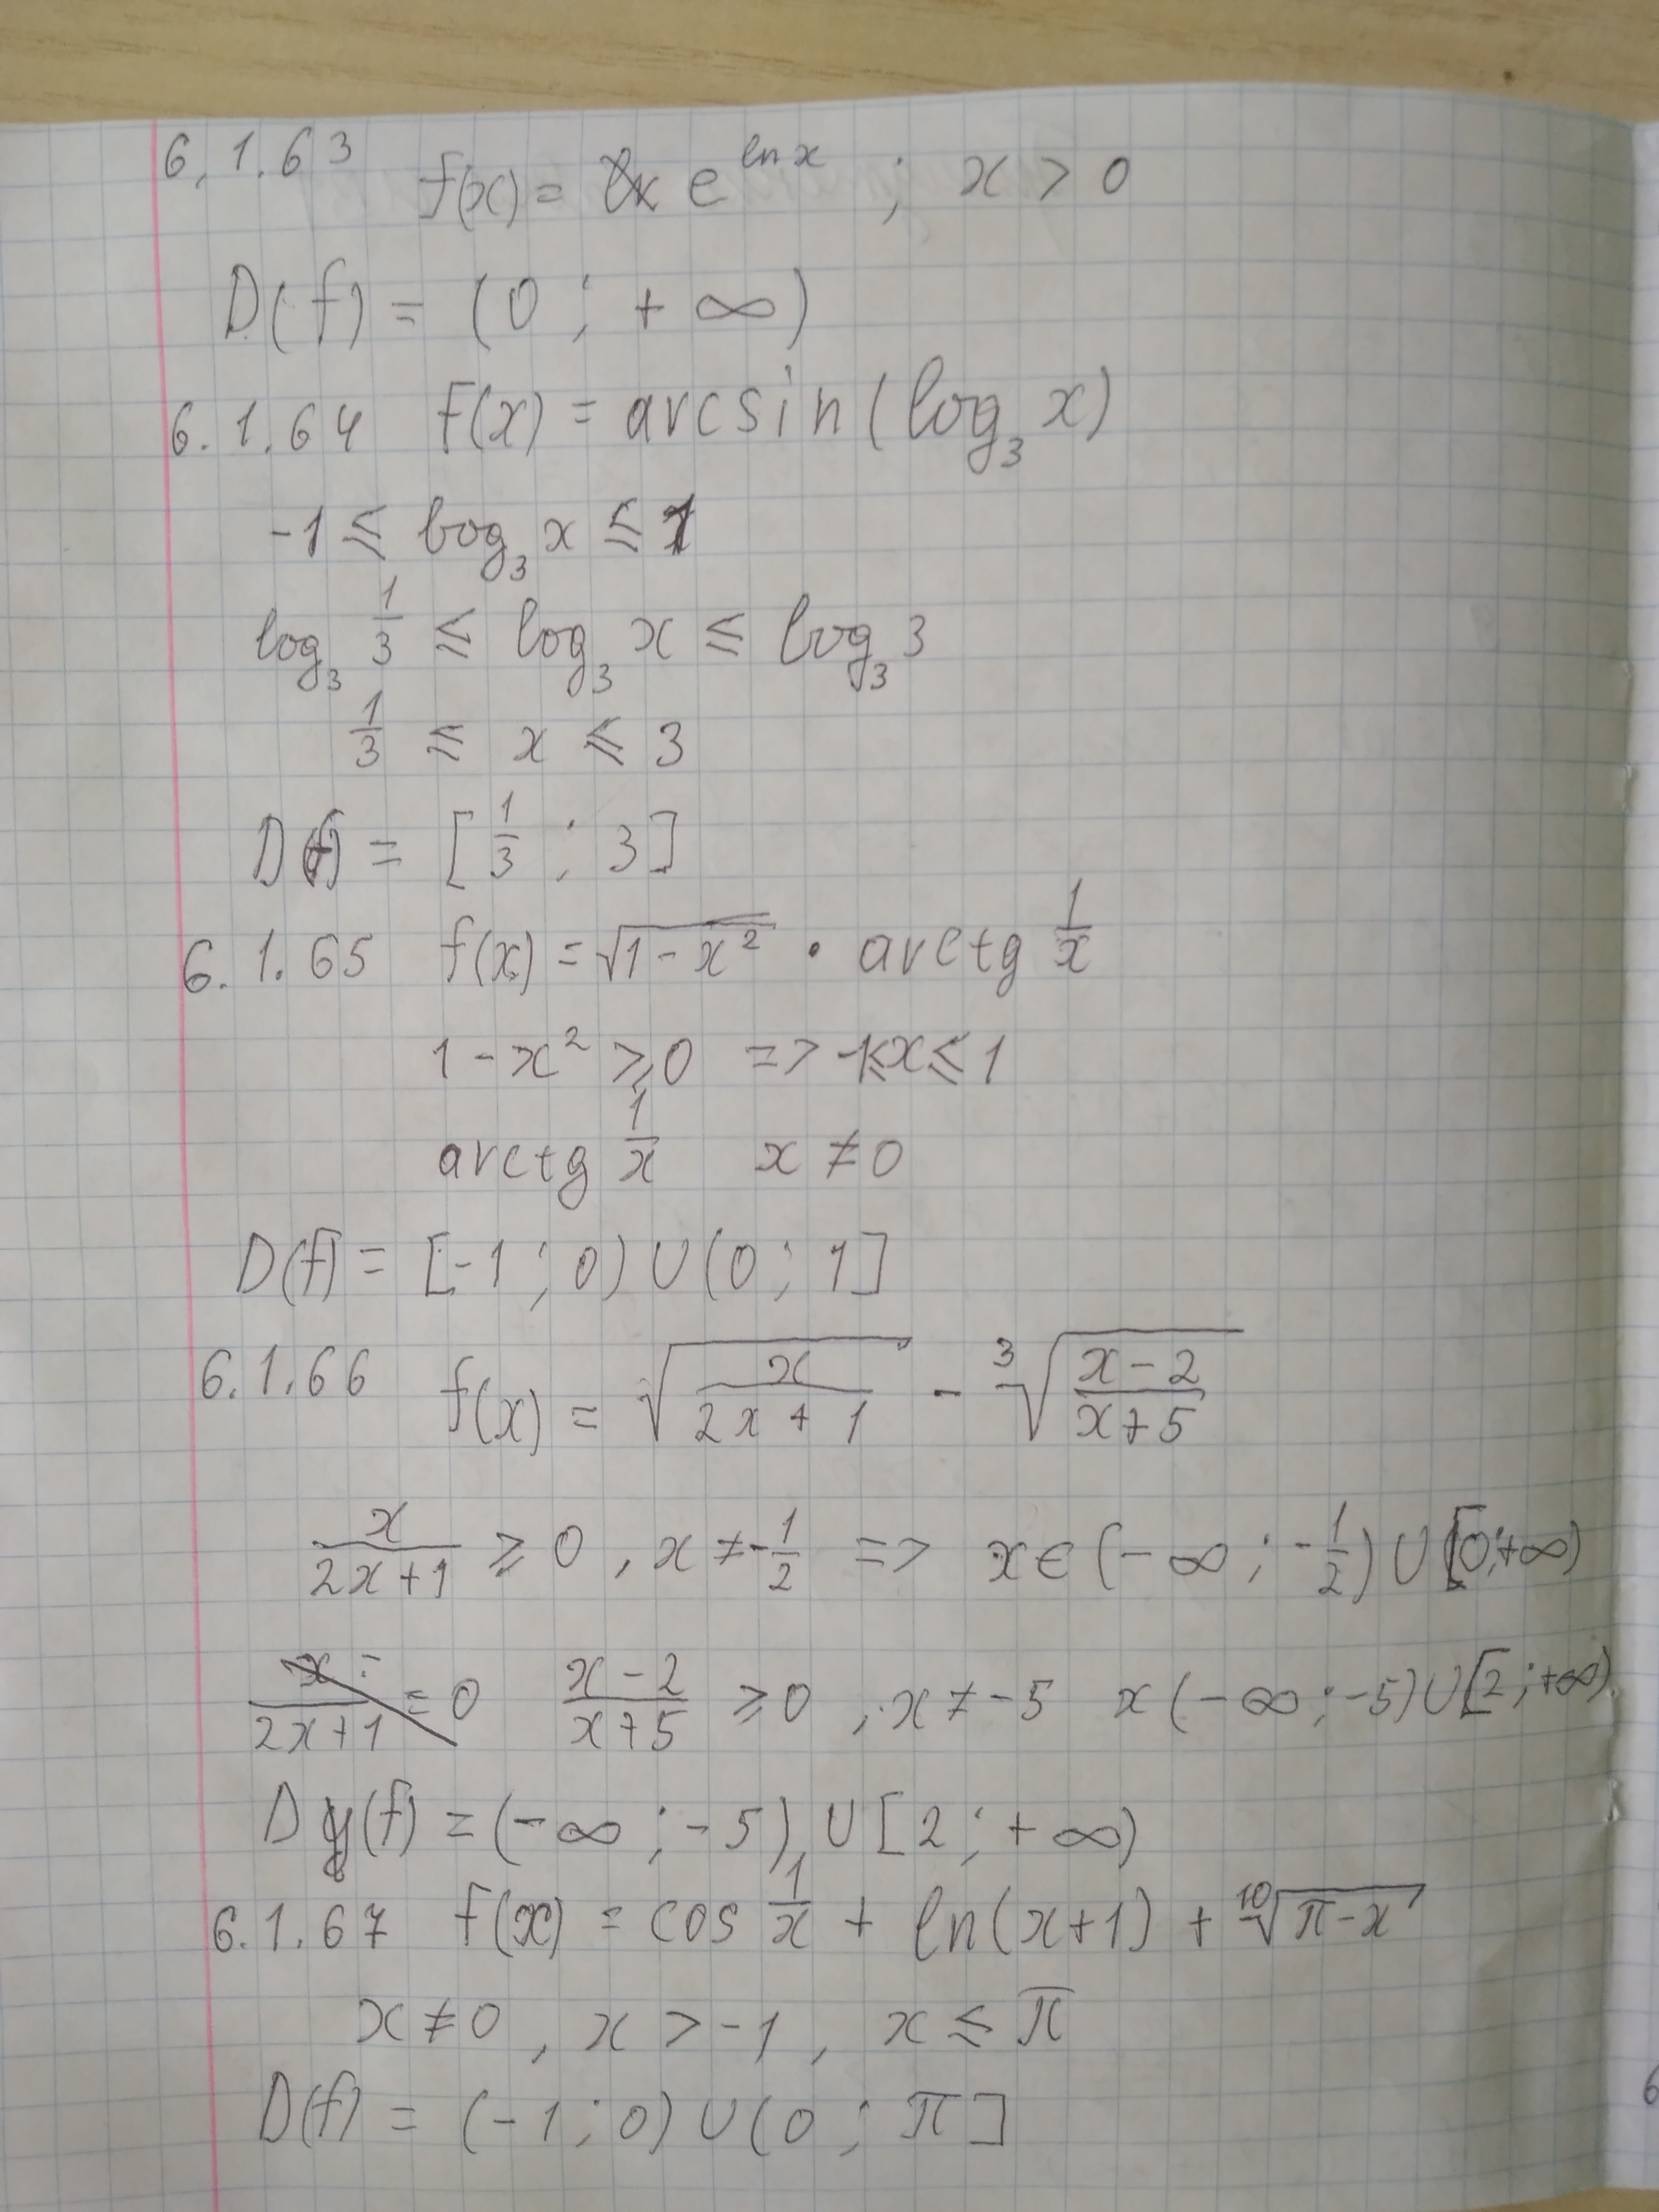 6.1.63 f(x) = e^{ln x} ; x > 0
D(f) = (0 ; + ∞)
6.1.64 f(x) = arcsin(log₃ x)
-1 ≤ log₃ x ≤ 1
log₃ 1/3 ≤ log₃ x ≤ log₃ 3
1/3 ≤ x ≤ 3
D(f) = [1/3 ; 3]
6.1.65 f(x) = √(1-x²) · arctg 1/x
1 - x² ≥ 0 => -1 ≤ x ≤ 1
arctg 1/x x ≠ 0
D(f) = [-1 ; 0) ∪ (0 ; 1]
6.1.66 f(x) = √(x/(2x+1)) - ³√((x-2)/(x+5))
x/(2x+1) ≥ 0 , x ≠ -1/2 => x ∈ (-∞ ; -1/2) ∪ [0 ; +∞)
x/(2x+1) = 0 (x-2)/(x+5) ≥ 0 , x ≠ -5 x (-∞ ; -5) ∪ [2 ; +∞)
D(f) = (-∞ ; -5) ∪ [2 ; +∞)
6.1.67 f(x) = cos 1/x + ln(x+1) + ¹⁰√(π-x)
x ≠ 0 , x > -1 , x ≤ π
D(f) = (-1 ; 0) ∪ (0 ; π]
6